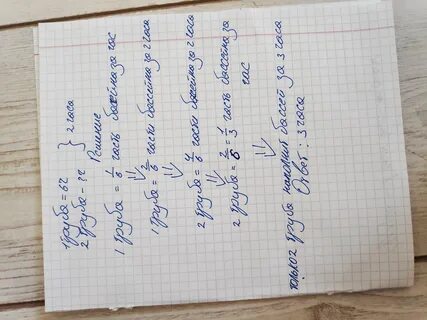 1 труба = 6ч
2 труба - ?ч } 2 часа
Решение
1 труба = 1/6 часть бассейна за час
1 труба = 2/6 части бассейна за 2 часа
2 труба = 4/6 части бассейна за 2 часа
2 труба = 2/6 = 1/3 часть бассейна за час
только 2 труба наполнит бассей за 3 часа
Ответ: 3 часа